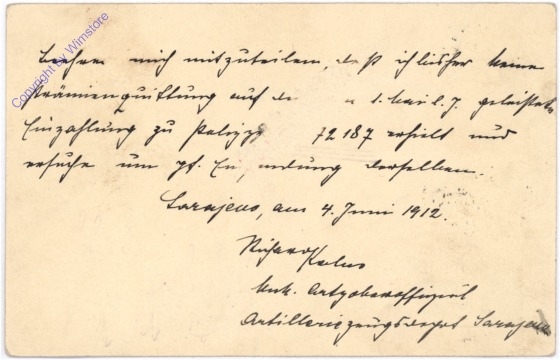 Beehre mich mitzuteilen, daß ich bisher keine
Prämienquittung auf de am 1. Mai l. J. geleistete
Einzahlung zu Polizze 72187 erhielt und
ersuche um gf. Zu endung derselben.
Sarajevo, am 4. Juni 1912.
Richard
Artilleriezeugsdepot Sarajevo
Copyright by Wimstore